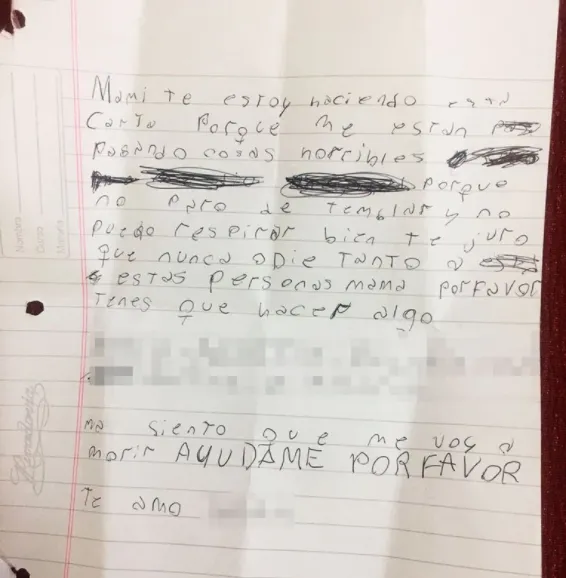 Mami te estoy haciendo esta
Carta Porque me estan
pasando cosas horribles
porque
no paro de temblar y no
puedo respirar bien te juro
que nunca odie TANTO a
estas personas mama porfavor
Tenes que hacer algo
siento que me voy a
morir AYUDAME PORFAVOR
Te amo
Nombre
Curso
Materia